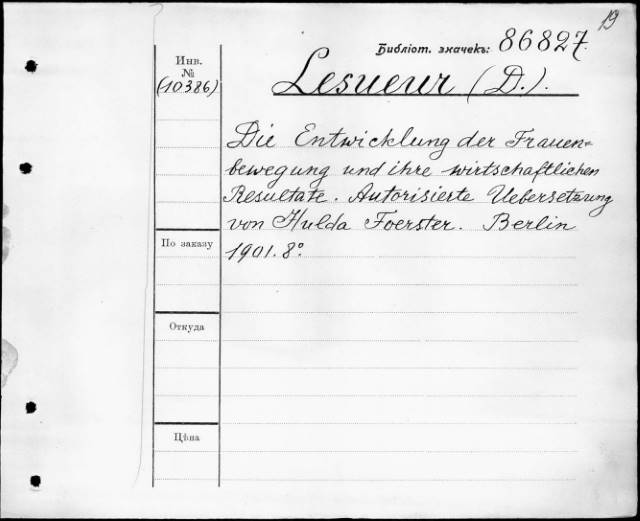 19
Библіот. значекъ: 86827
Инв.
№
(10386)
Lesueur (D.).
Die Entwicklung der Frauen-
bewegung und ihre wirtschaftlichen
Resultate. Autorisierte Uebersetzung
von Hulda Foerster. Berlin
1901. 8°.
По заказу
Откуда
Цѣна